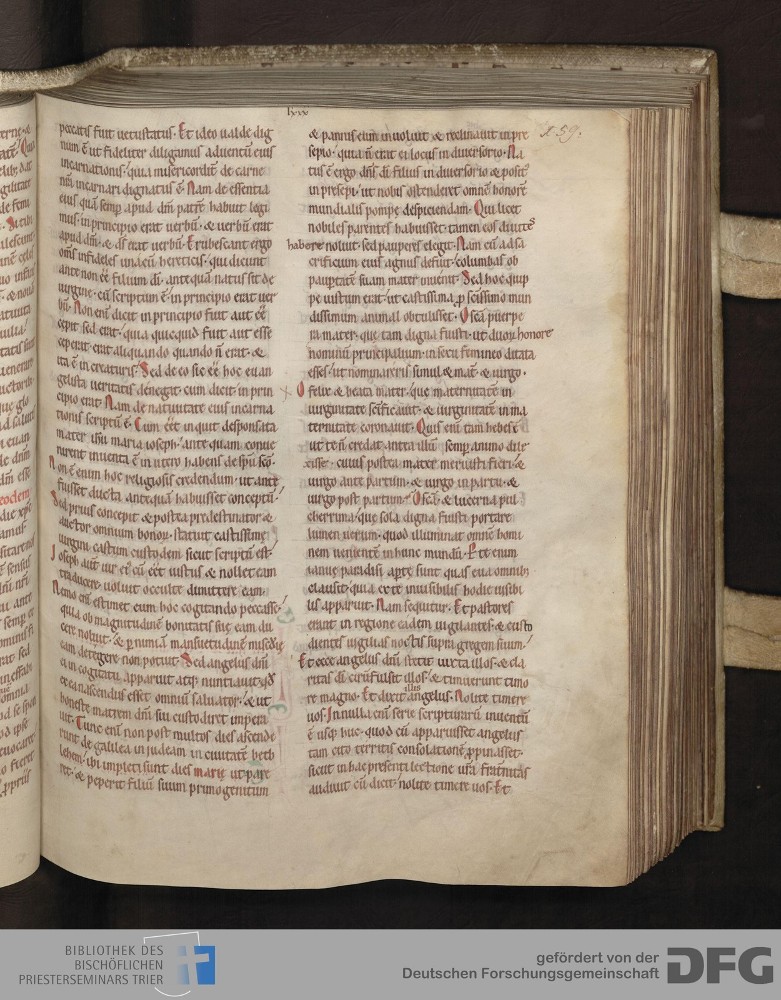 lxx
x 59.
peccatis fuit uetustatus. Et ideo ualde dig
num ē ut fideliter diligamus aduentū eius
incarnationis. quia misericordit̄ de carne
nr̄a incarnari dignatus ē. Nam de essentia
eius quā semp̄ apud dm̄ patrē habuit legi
mus. in principio erat uerbū. & uerbū erat
apud dm̄. & ds̄ erat uerbū. Erubescant ergo
om̄s infideles unacū hereticis. qui dicunt
ante non eē filium dī. antequā natus sit de
uirgine. cū scriptum ē. in principio erat uer
bū. Non enī dicit in principio fuit aut eē
cepit sed erat. quia quicquid fuit aut esse
ceperat. erat aliquando quando n̄ erat. &
ita ē in creaturis. Sed de eo sic eē hoc euan
gelista ueritatis denegat. cum dicit. in prin
cipio erat. Nam de natiuitate eius incarna
tionis scriptū ē. Cum eēt inquit desponsata
mater ih̄u maria ioseph. ante quam conue
nirent inuenta ē in utero habens de sp̄u sc̄o.
Non ē enim hoc religiosis credendum. ut ante
fuisset ducta. antequā habuisset conceptū.
Sed prius concepit & postea predestinator &
auctor omnium bonor̄. statuit castissimę
uirgini castum custodem. sicut scriptū est.
Ioseph aut̄ uir eī cū eēt iustus & nollet eam
traducere. uoluit occulte dimittere eam.
Nemo enī estimet eum hoc cogitando peccasse.
quia ob magnitudinē bonitatis suę eam du
cere noluit. & p̄ nimiā mansuetudinē misęrię
eam detegere non potuit. Sed angelus dnī
ei in cogitatu apparuit atq; nuntiauit qd̄
ex ea nascendus esset omniū saluator. & ut
honeste matrem dnī sui custodiret impera
uit. Tunc enī non post multos dies ascende
runt de galilea in iudeam in ciuitatē beth
lehem. ibi impleti sunt dies marię ut pare
ret. & peperit filiū suum primogenitum
& pannis eum inuoluit & reclinauit in pre
sepio. quia n̄ erat ei locus in diuersorio. Na
tus ē ergo dnī dī filius in diuersorio & posit9
in presepi. ut nobis ostenderet omnē honorē
mundialis pompę despiciendam. Qui licet
nobiles parentes habuisset. tamen eos diuites
habere noluit. sed pauperes elegit. Nam cū ad sa
crificium eius agnus defuit. columbas ob
paup̄tatē suam mater inuenit. Sed hoc quip
pe iustum erat. ut castissima p̄ sc̄issimo mun
dissimum animal obtulisset. O sc̄a puerpe
ra mater. que tam digna fuisti. ut duor̄ honore
nominū principalium. in sexu femineo ditata
esses. ut nominareris simul & mat̄ & uirgo.
O felix & beata mater. que maternitatē in
uirginitate sc̄ificauit. & uirginitatē in ma
ternitate coronauit. Quis enī tam hebes ē
ut te n̄ credat antea illū semp̄ animo dile
xisse. cuius postea mater meruisti fieri. &
uirgo ante partum. & uirgo in partu. &
uirgo post partum. O sc̄a & lucerna pul
cherrima. que sola digna fuisti portare
lumen uerum. quod illuminat omnē homi
nem uenientē in hunc mundū. P te enim
ianuę paradisi ap̄tę sunt quas eua omnib;
clausit. quia ex te inuisibilis hodie uisibi
lis apparuit. Nam sequitur. Et pastores
erant in regione eadem uigilantes. & custo
dientes uigilias noctis supra gregem suum.
Et ecce angelus dnī stetit iuxta illos. & cla
ritas dī circūfulsit illos. & timuerunt timo
re magno. Et dixit illis angelus. Nolite timere
uos. In nulla enī serie scripturarū inuentū
ē usq; huc. quod cū apparuisset angelus
tam cito territis consolationē p̄pinasset.
sicut in hac presenti lectione ur̄a frat̄nitas
audiuit cū dicit. nolite timere uos. Et
BIBLIOTHEK DES
BISCHÖFLICHEN
PRIESTERSEMINARS TRIER
gefördert von der
Deutschen Forschungsgemeinschaft
DFG